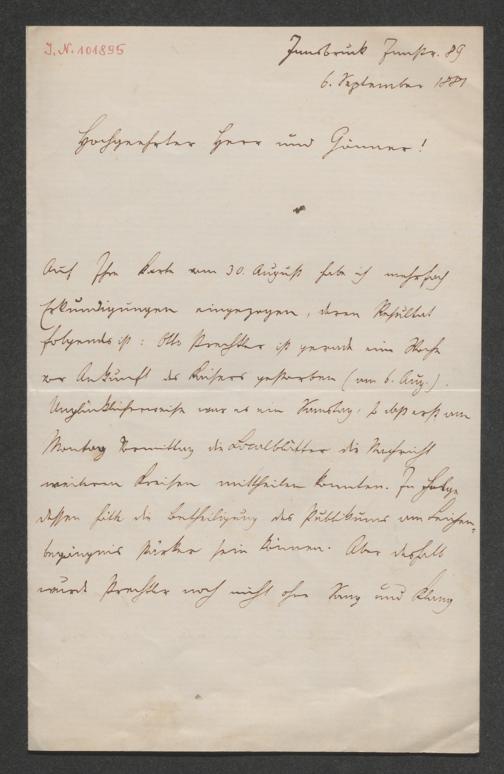 I. N. 101895
Innsbruck Innstr. 89
6. September 1881
Hochgeehrter Herr und Gönner!
Auf Ihre Karte vom 30. August habe ich mehrfach
Erkundigungen eingezogen, deren Resultat
folgendes ist: Otto Prechtler ist gerade eine Woche
vor Ankunft des Kaisers gestorben (am 6. Aug.).
Unglücklicherweise war es ein Samstag, so daß erst am
Montag Vormittag die Localblätter die Nachricht
weiteren Kreisen mittheilen konnten. In Folge
dessen hätte die Betheiligung des Publikums am Leichen-
begängnis stärker sein können. Aber deßhalb
wurde Prechtler noch nicht ohne Sang und Klang